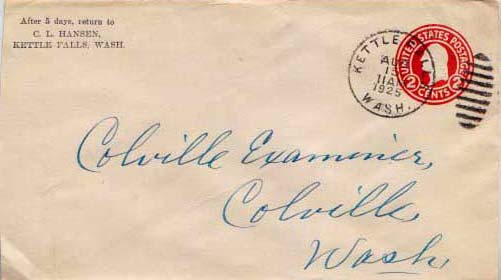 After 5 days, return to
C. L. HANSEN,
KETTLE FALLS, WASH.
KETTLE
AU
15
11A
1925
WASH.
UNITED STATES POSTAGE
2 CENTS 2
Colville Examiner,
Colville,
Wash.